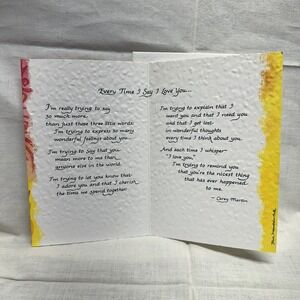 Every Time I Say I Love You...
I'm really trying to say
so much more
than just those three little words;
I'm trying to express so many
wonderful feelings about you...
I'm trying to say that you
mean more to me than
anyone else in the world
I'm trying to let you know that
I adore you and that I cherish
the time we spend together
I'm trying to explain that I
want you and that I need you
and that I get lost
in wonderful thoughts
every time I think about you
And each time I whisper
"I love you,"
I'm trying to remind you
that you're the nicest thing
that has ever happened
to me.
— Corey Martin